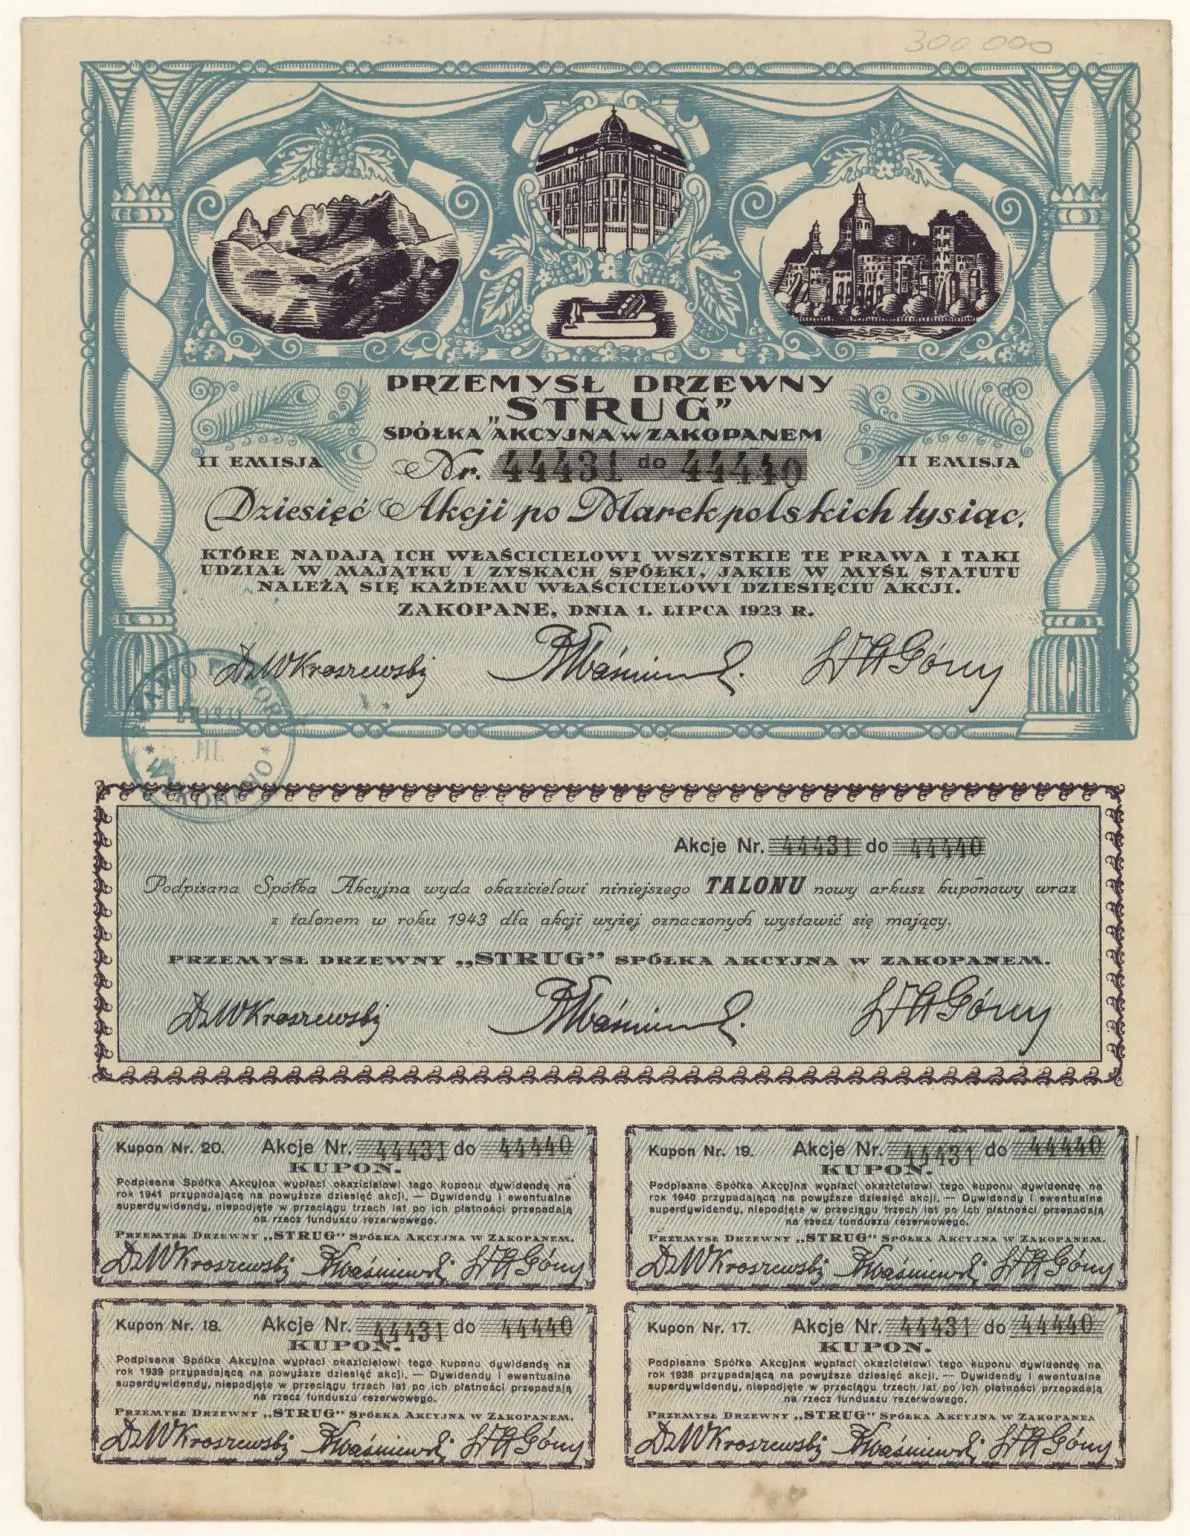 300 000
PRZEMYSŁ DRZEWNY
„STRUG”
SPÓŁKA AKCYJNA W ZAKOPANEM
II EMISJA Nr. 44431 do 44440 II EMISJA
Dziesięć Akcji po Marek polskich tysiąc,
KTÓRE NADAJĄ ICH WŁAŚCICIELOWI WSZYSTKIE TE PRAWA I TAKI
UDZIAŁ W MAJĄTKU I ZYSKACH SPÓŁKI, JAKIE W MYŚL STATUTU
NALEŻĄ SIĘ KAŻDEMU WŁAŚCICIELOWI DZIESIĘCIU AKCJI.
ZAKOPANE, DNIA 1. LIPCA 1923 R.
Dr WKraszewski
PRAWO POBORU
III
WYKONANO
Akcje Nr. 44431 do 44440
Podpisana Spółka Akcyjna wyda okazicielowi niniejszego TALONU nowy arkusz kuponowy wraz
z talonem w roku 1943 dla akcji wyżej oznaczonych wystawić się mający.
PRZEMYSŁ DRZEWNY „STRUG” SPÓŁKA AKCYJNA W ZAKOPANEM.
Dr WKraszewski
Kupon Nr. 20. Akcje Nr. 44431 do 44440
KUPON.
Podpisana Spółka Akcyjna wypłaci okazicielowi tego kuponu dywidendę na
rok 1941 przypadającą na powyższe dziesięć akcji. — Dywidendy i ewentualne
superdywidendy, niepodjęte w przeciągu trzech lat po ich płatności przepadają
na rzecz funduszu rezerwowego.
PRZEMYSŁ DRZEWNY „STRUG” SPÓŁKA AKCYJNA W ZAKOPANEM.
Dr WKraszewski
Kupon Nr. 19. Akcje Nr. 44431 do 44440
KUPON.
Podpisana Spółka Akcyjna wypłaci okazicielowi tego kuponu dywidendę na
rok 1940 przypadającą na powyższe dziesięć akcji. — Dywidendy i ewentualne
superdywidendy, niepodjęte w przeciągu trzech lat po ich płatności przepadają
na rzecz funduszu rezerwowego.
PRZEMYSŁ DRZEWNY „STRUG” SPÓŁKA AKCYJNA W ZAKOPANEM.
Dr WKraszewski
Kupon Nr. 18. Akcje Nr. 44431 do 44440
KUPON.
Podpisana Spółka Akcyjna wypłaci okazicielowi tego kuponu dywidendę na
rok 1939 przypadającą na powyższe dziesięć akcji. — Dywidendy i ewentualne
superdywidendy, niepodjęte w przeciągu trzech lat po ich płatności przepadają
na rzecz funduszu rezerwowego.
PRZEMYSŁ DRZEWNY „STRUG” SPÓŁKA AKCYJNA W ZAKOPANEM.
Dr WKraszewski
Kupon Nr. 17. Akcje Nr. 44431 do 44440
KUPON.
Podpisana Spółka Akcyjna wypłaci okazicielowi tego kuponu dywidendę na
rok 1938 przypadającą na powyższe dziesięć akcji. — Dywidendy i ewentualne
superdywidendy, niepodjęte w przeciągu trzech lat po ich płatności przepadają
na rzecz funduszu rezerwowego.
PRZEMYSŁ DRZEWNY „STRUG” SPÓŁKA AKCYJNA W ZAKOPANEA
Dr WKraszewski